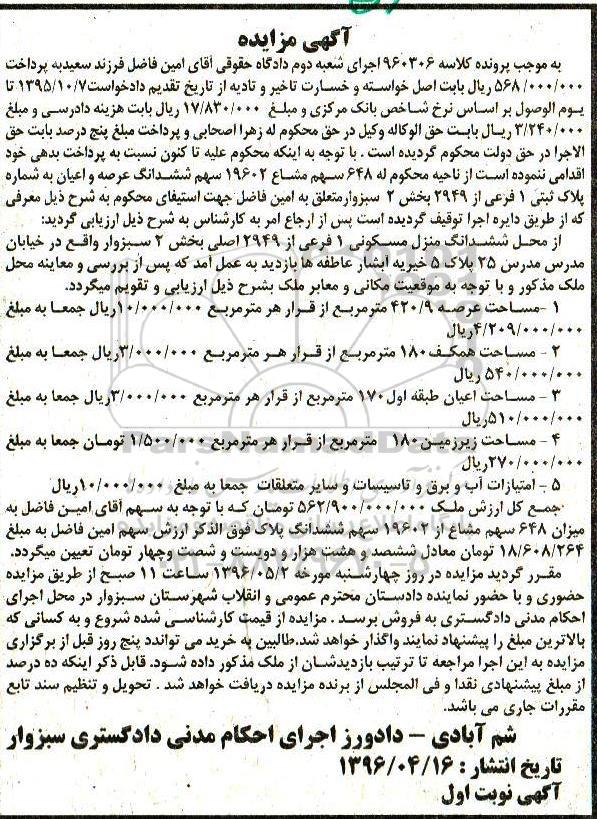 آگهی مزایده
به موجب پرونده کلاسه ۹۶۰۳۰۶ اجرای شعبه دوم دادگاه حقوقی آقای امین فاضل فرزند سعیدبه پرداخت
۵۶۸/۰۰۰/۰۰۰ ریال بابت اصل خواسته و خسارت تاخیر و تادیه از تاریخ تقدیم دادخواست۱۳۹۵/۱۰/۷ تا
یـوم الوصـول بـر اسـاس نرخ شـاخص بانک مرکزی و مبلـغ ۱۷/۸۳۰/۰۰۰ ریال بابت هزینه دادرسـی و مبلغ
۳/۲۴۰/۰۰۰ ریـال بابـت حق الوکاله وکیل در حق محکوم له زهرا اصحابی و پرداخت مبلغ پنج درصد بابت حق
الاجرا در حق دولت محکوم گردیده است . با توجه به اینکه محکوم علیه تا کنون نسبت به پرداخت بدهی خود
اقدامی ننموده است از ناحیه محکوم له ۶۴۸ سـهم مشـاع ۱۹۶۰۲ سهم ششدانگ عرصه و اعیان به شماره
پلاک ثبتی ۱ فرعی از ۲۹۴۹ بخش ۲ سبزوارمتعلق به امین فاضل جهت استیفای محکوم به شرح ذیل معرفی
که از طریق دایره اجرا توقیف گردیده است پس از ارجاع امر به کارشناس به شرح ذیل ارزیابی گردید:
از محـل ششـدانگ منزل مسـکونی ۱ فرعی از ۲۹۴۹ اصلی بخش ۲ سـبزوار واقـع در خیابان
مدرس مدرس ۲۵ پلاک۵ خیریه آبشار عاطفه ها بازدید به عمل آمد که پس از بررسی و معاینه محل
ملک مذکور و با توجه به موقعیت مکانی و معابر ملک بشرح ذیل ارزیابـی و تقویم میگردد.
۱ -مسـاحت عرصـه ۴۲۰/۹ مترمربـع از قـرار هر مترمربـع ۱۰/۰۰۰/۰۰۰ریال جمعـا به مبلغ
۴/۲۰۹/۰۰۰/۰۰۰ریال
۲ - مسـاحت همکـف۱۸۰ مترمربـع از قـرار هـر مترمربـع ۳/۰۰۰/۰۰۰ریال جمعـا به مبلغ
۵۴۰/۰۰۰/۰۰۰ ریال
۳ - مساحت اعیان طبقه اول۱۷۰ مترمربع از قرار هر مترمربع ۳/۰۰۰/۰۰۰ریال جمعا به مبلغ
۵۱۰/۰۰۰/۰۰۰ریال
۴ - مساحت زیرزمین۱۸۰ مترمربع از قرار هر مترمربع ۱/۵۰۰/۰۰۰ تومـان جمعـا به مبلغ
۲۷۰/۰۰۰/۰۰۰ریال
۵ - امتیازات آب و برق و تاسیسات و سایر متعلقات جمعا به مبلغ ۱۰/۰۰۰/۰۰۰ریال
جمـع کل ارزش ملـک ۵۶۲/۹۰۰/۰۰۰/۰۰۰ تومـان کـه با توجه به سـهم آقای امیـن فاضـل به
میزان ۶۴۸ سهم مشاع از ۱۹۶۰۲ سهم ششدانگ پلاک فوق الذکر ارزش سهم امین فاضل به مبلغ
۱۸/۶۰۸/۲۶۴ تومان معادل ششصد و هشت هزارو دویست و شصت وچهار تومان تعیین میگردد.
مقـرر گردید مزایده در روز چهارشـنبه مورخه ۱۳۹۶/۰۵/۲ سـاعت ۱۱ صبح از طریق مزایده
حضوری و با حضور نماینده دادستان محترم عمومی و انقلاب شهرستان سبزوار در محل اجرای
احکام مدنی دادگسـتری به فروش برسـد . مزایده از قیمت کارشناسـی شـده شروع و به کسانی که
بالاترین مبلغ را پیشنهاد نمایند واگذار خواهد شد.طالبین به خرید می توانندد پنج روز قبل از برگزاری
مزایده به این اجرا مراجعه تا ترتیب بازدیدشـان از ملک مذکور داده شـود. قابل ذکر اینکه ده درصد
از مبلغ پیشنهادی نقدا و فی المجلس از برنده مزایده دریافت خواهد شد . تحویل و تنظیم سند تابع
مقررات جاری می باشد.
شم آبادی - دادورز اجرای احکام مدنی دادگستری سبزوار
تاریخ انتشار : ۱۳۹۶/۰۴/۱۶
آگهی نوبت اول
ParsNamadData